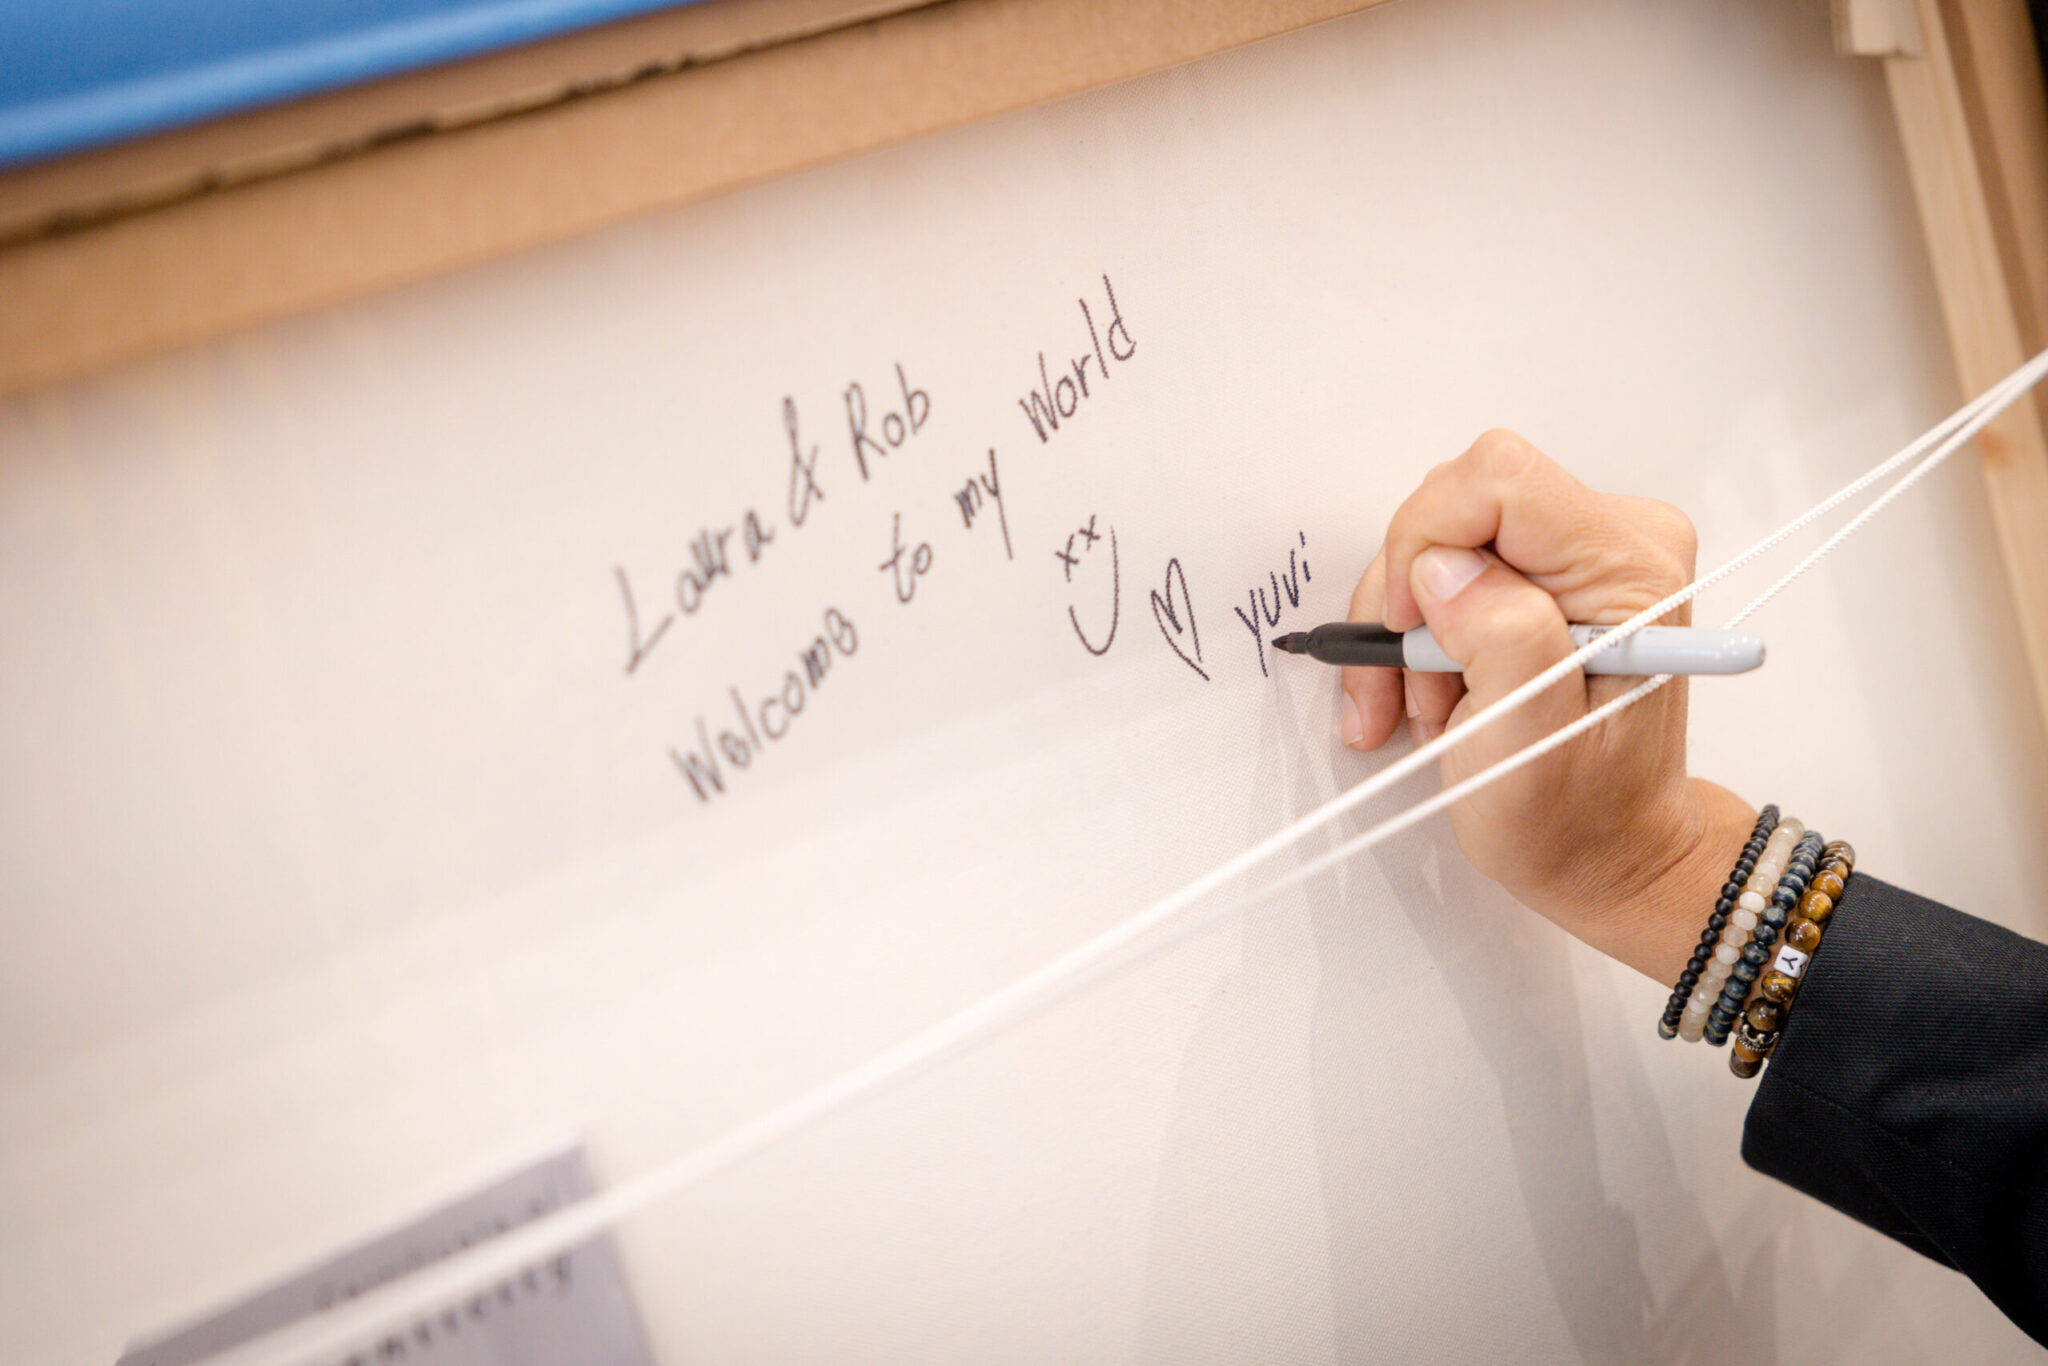 Laura & Rob
Welcome to my World
xx
yuvi
Y